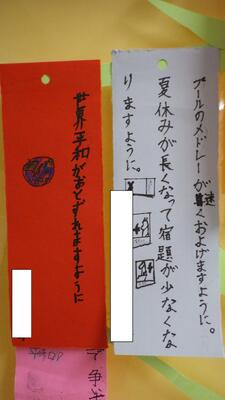 プールのメドレーが速くおよげますように。
夏休みが長くなって宿題が少なくな
りますように。
世界平和がおとずれますように
争